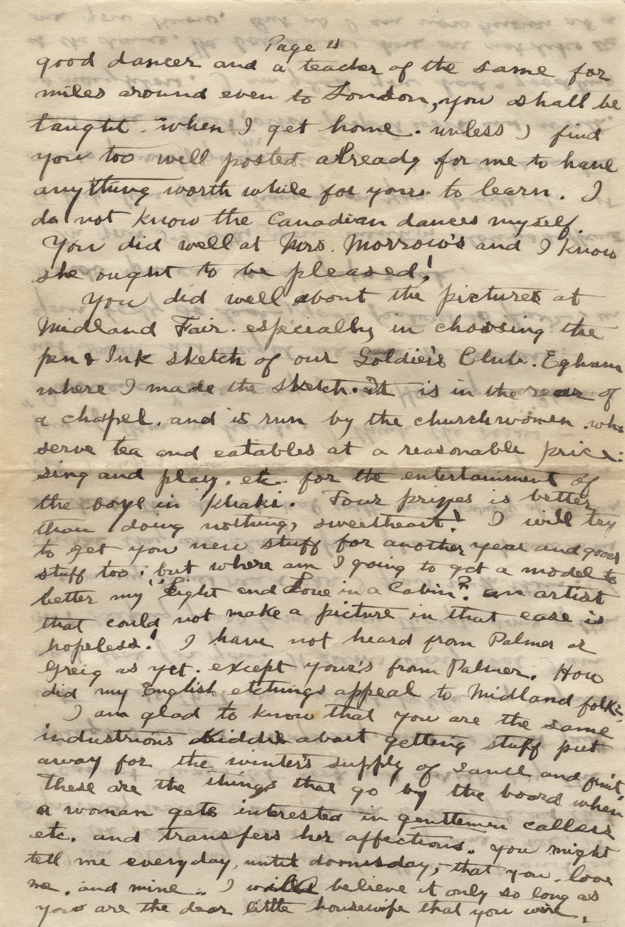 Page 4
good dancer and a teacher of the same for
miles around even to London, you shall be
taught. when I get home. unless I find
you too well posted already for me to have
anything worth while for yours to learn. I
do not know the Canadian dances myself.
You did well at Mrs. Morrow's and I know
she ought to be pleased!
You did well about the pictures at
Midland Fair. especially in choosing the
pen & Ink sketch of our Soldier's Club. Egham
where I made the sketch. It is in the rear of
a chapel. and is run by the churchwomen. who
serve tea and eatables at a reasonable price.
sing and play. etc. for the entertainment of
the boys in khaki. Four prizes is better
than doing nothing, sweetheart! I will try
to get you new stuff for another year and good
stuff too. but where am I going to get a model to
better my "Light and Love in a Cabin"? an artist
that could not make a picture in that case is
hopeless! I have not heard from Palmer or
Greig as yet. except your's from Palmer. How
did my English etchings appeal to Midland folk?
I am glad to know that you are the same
industrious kiddie about getting stuff put
away for the winter's supply of sauce and fruit.
these are the things that go by the board when
a woman gets interested in gentlemen callers
etc. and transfers her affections. you might
tell me everyday, until doomsday, that you love
me. and mine. I will believe it only so long as
you are the dear little housewife that you were.